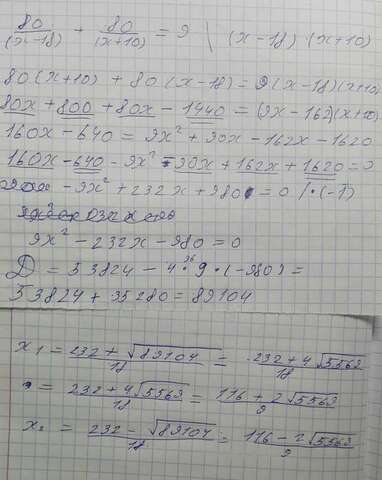 80/(x-18) + 80/(x+10) = 9 \ (x-18)·(x+10)
80(x+10) + 80(x-18) = 9(x-18)(x+10)
80x + 800 + 80x - 1440 = (9x-162)(x+10)
160x - 640 = 9x² + 90x - 162x - 1620
160x - 640 - 9x² - 90x + 162x + 1620 = 0
- 9x² + 232x + 980 = 0 /·(-1)
9x² - 232x - 980 = 0
D = 53824 - 4·9·(-980) =
36
53824 + 35280 = 89104
x₁ = (232 + √89104)/18 = (232 + 4√5563)/18
= (232 + 4√5563)/18 = (116 + 2√5563)/9
x₂ = (232 - √89104)/18 = (116 - 2√5563)/9